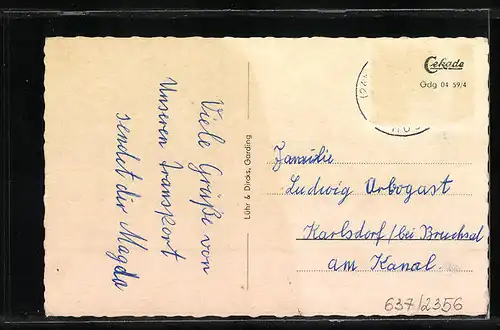 Viele Grüße von
Unseren transport
sendet dir Magda
Lühr & Dircks, Garding
Cekade
Gdg 04 59/4
Familie
Ludwig Arbogast
Karlsdorf/bei Bruchsal
am Kanal.
637/2356